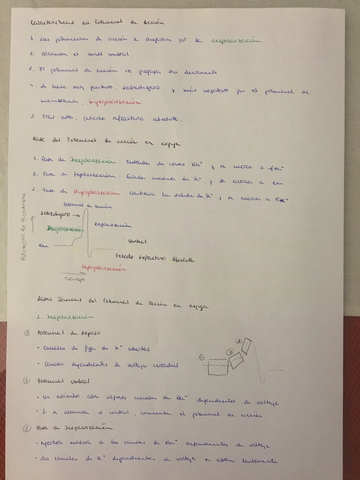 Características del Potencial de Acción
1. Los potenciales de acción se disparan por la despolarización
2. Alcanzan el nivel umbral
3. El potencial de acción se propaga sin decremento
4. La fase más positiva, sobredisparo y más negativa que el potencial de membrana, hiperpolarización
5. Tras esto, período refractario absoluto
Fases del Potencial de acción en espiga
1. Fase de Despolarización: Entrada de iones Na⁺, se acerca a ENa⁺
2. Fase de Repolarización: Salida de K⁺, se acerca a
3. Fase de Hiperpolarización: Continúa la salida de K⁺, se acerca a EK⁺
Potencial de acción
sobredisparo
Despolarización
Repolarización
Potencial de Membrana
Umbral
Período Refractario Absoluto
Hiperpolarización
Tiempo
Bases Iónicas del Potencial de Acción en Espiga
1. Despolarización
① Potencial de Reposo
• Canales de fuga de K⁺ abiertos
• Canales dependientes de voltaje cerrados
② Potencial Umbral
• Un estímulo abre algunos canales de Na⁺ dependientes de voltaje
• Si se alcanza el umbral, comienza el potencial de acción
③ Fase de Despolarización
• Apertura de los canales de Na⁺ dependientes de voltaje
• Los canales de K⁺ dependientes de voltaje se abren lentamente